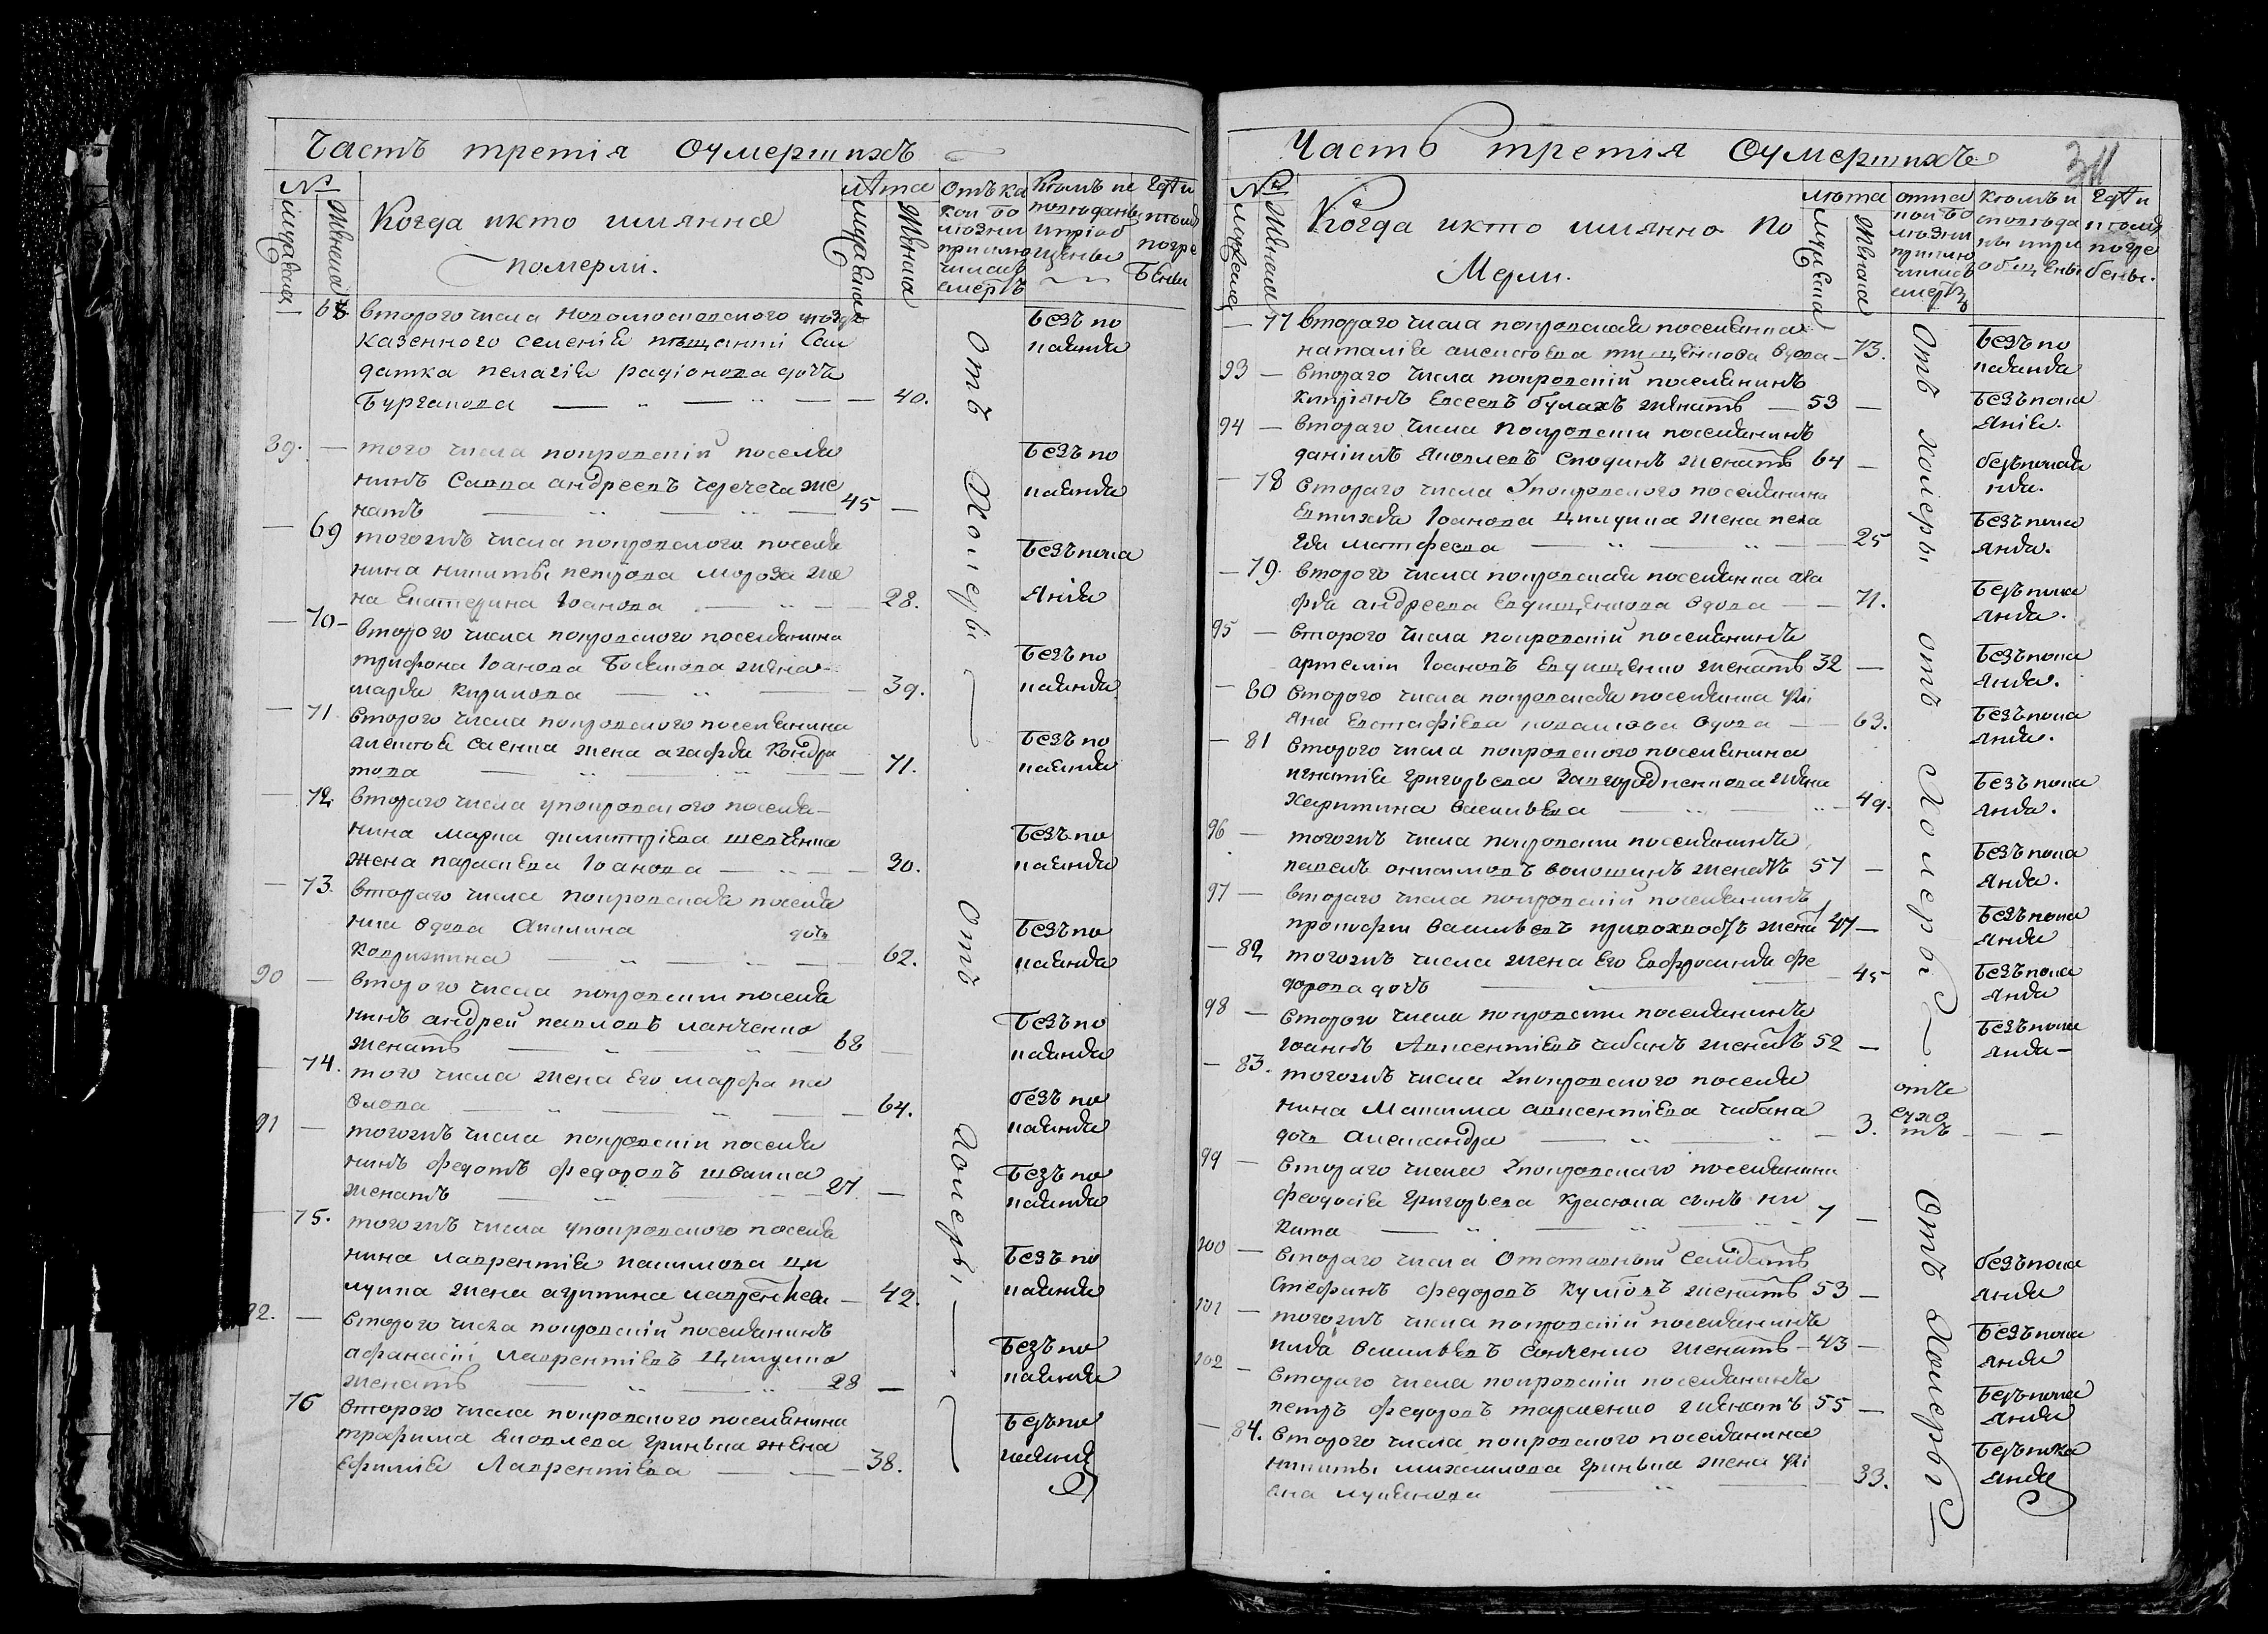 Часть третія Оумершихъ
№
мужеска
женска
Когда икто имянно
померли.
лѣта
мужеска
женска
Отъ ка
кой бо
лезни
приклю
чилась
смерть
Кѣмъ ис
поведаны
ипріоб
щены
Гдѣ и
кѣмъ
погре
бены
— 68 второго числа
казенного селенія Сал
датка пелагія радіонова дочь
Бурганова — 40.
Отъ Холеры
Безъ по
каянія
39. — того числа покровскій поселя
нинъ Савва андреевъ черечеча же
натъ 45 —
Безъ по
каянія
— 69 тогожъ числа покровского поселя
нина никиты петрова мороза же
на Екатерина Іоанова — 28.
Безъ пока
янія
— 70 — второго числа покровского поселянина
трифона Іоанова жена
марѳа кирилова — 39.
Безъ по
каянія
— 71. второго числа покровского поселянина
алексѣя саенка жена агафія Кондра
това — 71.
Безъ по
каянія
— 72. втораго числа упокровского поселя
нина марка димитріева шевченка
жена параскева Іоанова — 30.
Безъ по
каянія
— 73. втораго числа покровская поселя
нка вдова Акилина дочь
— 62.
Отъ
Безъ по
каянія
90 — второго числа покровскии поселя
нинъ андрей павловъ ланченко
женатъ — 68
Безъ по
каянія
— 74. того числа жена Его марфа па
влова — 64.
безъ по
каянія
91 — тогожъ числа покровскіи поселя
нинъ федотъ федоровъ швайка
женатъ — 27. —
Холеры
Безъ по
каянія
— 75. тогожъ числа упокровского поселя
нина лаврентія цы
лупка жена агрипина лаврентіева — 42.
Безъ по
каянія
92. — второго числа покровскій поселянинъ
афанасій лаврентіевъ Цилупко
женатъ — 28 —
Безъ по
каянія
76 второго числа покровского поселянина
трофима Яковлева гринька жена
Ефимія Лаврентіева — 38.
Безъ по
каянія
Часть третія Оумершихъ
34
№
мужеска
женска
Когда икто имянно по
Мерли.
лѣта
мужеска
женска
отка
кой бо
лѣзни
приклю
чилась
смерть
Кѣмъ и
споведа
ны ипри
общены
Гдѣ и
кемъ
погре
бены.
— 77 втораго числа покровская поселянка
наталія алексѣева тищенкова вдова — 73.
Отъ холеры
Безъ по
каянія
93 — втораго числа покровскій поселянинъ
кипріянъ Евсеевъ булахъ женатъ — 53 —
Безъ пока
янія.
94 — втораго числа покровскии поселянинъ
даніилъ Яковлевъ сподинъ женатъ 64 —
безъ покая
нія.
— 78 второго числа Упокровского поселянина
Евтихія Іоанова цилупка жена пела
гія матфеева — 25
Безъ пока
янія.
— 79. второго числа покровская поселянка ага
фія андреева Евдищенкова вдова — 71.
Безъ пока
янія.
95 — второго числа покровскій поселянинъ
артемій Іоановъ Евдищенко женатъ 32 —
отъ
Безъ пока
янія.
— 80 второго числа покровская поселянка улі
яна Евстафіева вдова — 63.
Безъ пока
янія.
— 81 второго числа покровского поселянина
игнатія григорьева Завгородненкова жена
Харитина васильева — 49.
Холеры
Безъ пока
янія.
96 — тогожъ числа покровскии поселянинъ
павелъ волошинъ женатъ 57 —
Безъ пока
янія.
97 — второго числа покровскій поселянинъ
прокофій васильевъ приходко женатъ 47 —
Безъ пока
янія
— 82 тогожъ числа жена Его Евфросинія фе
дорова дочь — 45
Безъ пока
янія
98 — второго числа покровскии поселянинъ
Іоаннъ Авксентіевъ чабанъ женатъ 52 —
Безъ пока
янія —
— 83. тогожъ числа Упокровского поселя
нина Максима авксентіева чабана
дочь александра — 3.
отъ
сухо
тъ
99 — втораго числа Упокровскаго поселянина
феодосія григорьева Красюка сынъ ни
кита — 7 —
Отъ Холеры
100 — втораго числа Отставный Салдатъ
стефанъ федоровъ женатъ 53 —
безъ пока
янія
101 — тогожъ числа покровскій поселянинъ
васильевъ женатъ — 43 —
Безъ пока
янія
102 — втораго числа покровскіи поселянинъ
петръ федоровъ тараненко женатъ 55 —
Безъ пока
янія
— 84. второго числа покровского поселянина
никиты михайлова гринька жена улі
яна лукянова — 33.
Безъ пока
янія